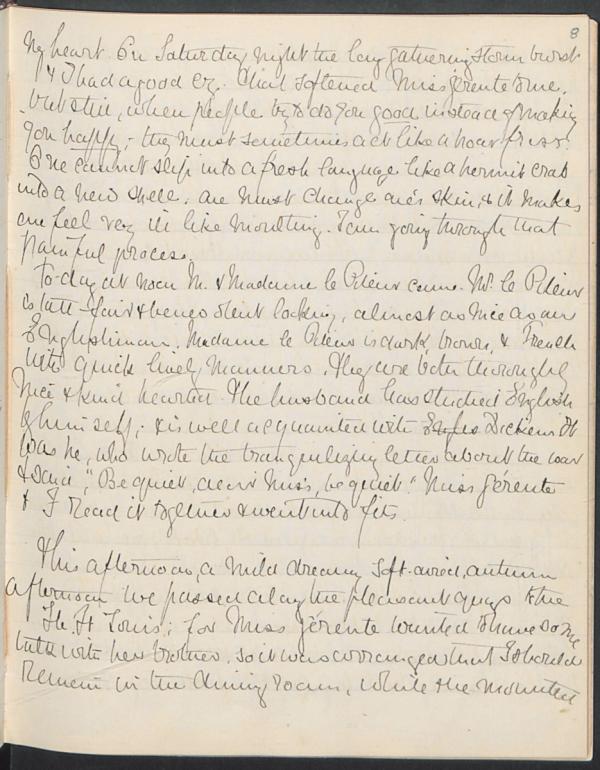 8
my heart. On Saturday night the long gathering storm burst
& I had a good cry. That softened Miss Gérente to me,
but still, when people try to do you good instead of making
you happy, - they must sometimes act like a hoar frost.
One cannot slip into a fresh language like a hermit crab
into a new shell, one must change one's skin, & it makes
one feel very ill like moulting. I am going through that
painful process.
To-day at noon M. & Madame le Pileur came. Mr. le Pileur
is tall - fair & benevolent looking, almost as nice as an
Englishman. Madame le Pileur is dark, brown, & French
with quick lively manners. They are both thoroughly
nice & kind hearted. The husband has studied English
by himself; & is well acquainted with Dickens. It
was he, who wrote the tranquilizing letter about the war
& said, "Be quiet, dear Miss, be quiet." Miss Gérente
& I read it together & went into fits.
This afternoon, a mild dreamy soft-aired, autumn
afternoon we passed along the pleasant quays to the
Ile St Louis; for Miss Gérente wanted to have some
talk with her brother, so it was arranged that I should
remain in the dining room, while she mounted